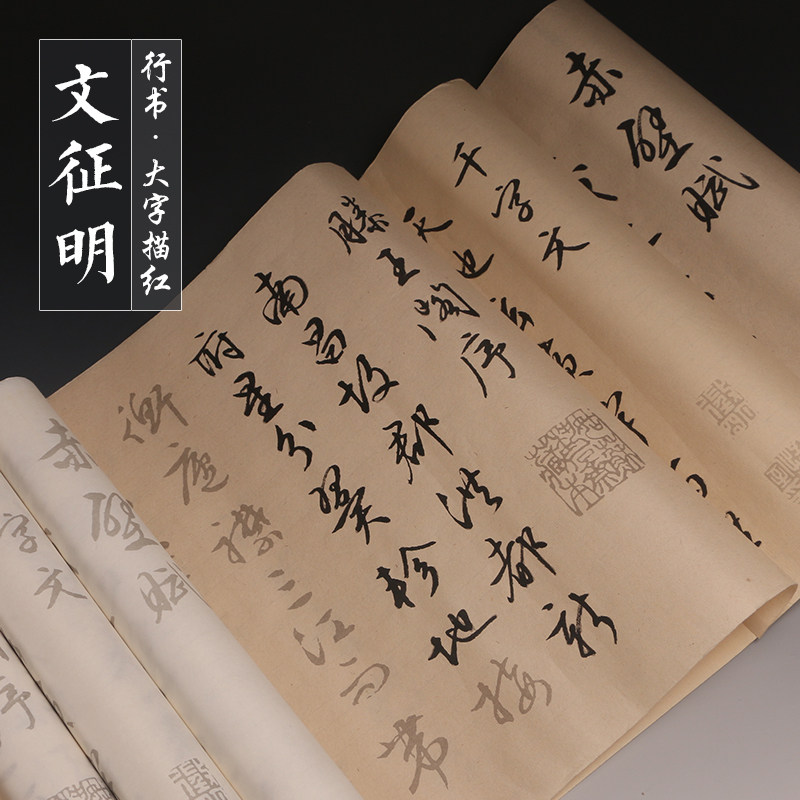 文征明
行书·大字描红
赤壁赋
千字文
天地玄黄
滕王阁序
南昌故郡洪都新
府星分翼轸地接
衡庐襟三江而带
赤壁赋
字文
序